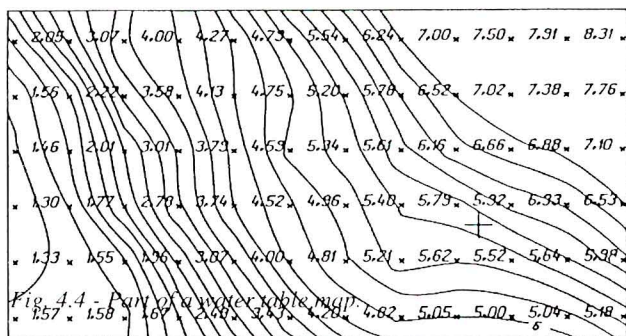 2.05 3.07 4.00 4.27 4.73 5.54 6.24 7.00 7.50 7.91 8.31
1.56 2.22 3.58 4.13 4.75 5.20 5.78 6.52 7.02 7.38 7.76
1.46 2.01 3.01 3.79 4.59 5.34 5.61 6.16 6.66 6.88 7.10
1.30 1.77 2.70 3.74 4.52 4.96 5.40 5.79 5.92 6.93 6.53
1.33 1.55 1.96 3.07 4.00 4.81 5.21 5.62 5.52 5.64 5.98
Fig. 4.4 - Part of a water table map.
1.57 1.58 1.67 2.46 3.43 4.28 4.82 5.05 5.00 5.04 5.18
6